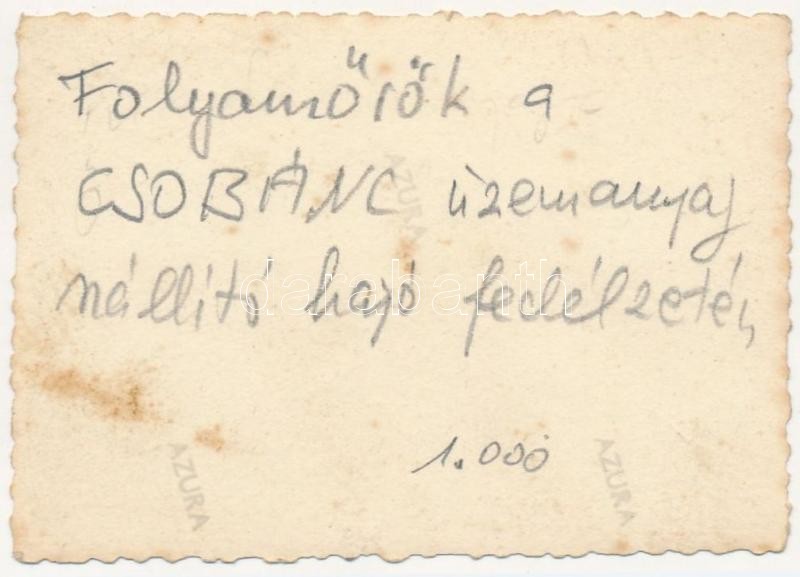 Folyamőrök a
CSOBÁNC üzemanyag
szállító hajó fedélzetén
1.000
AZURA
AZURA
AZURA
darabanth